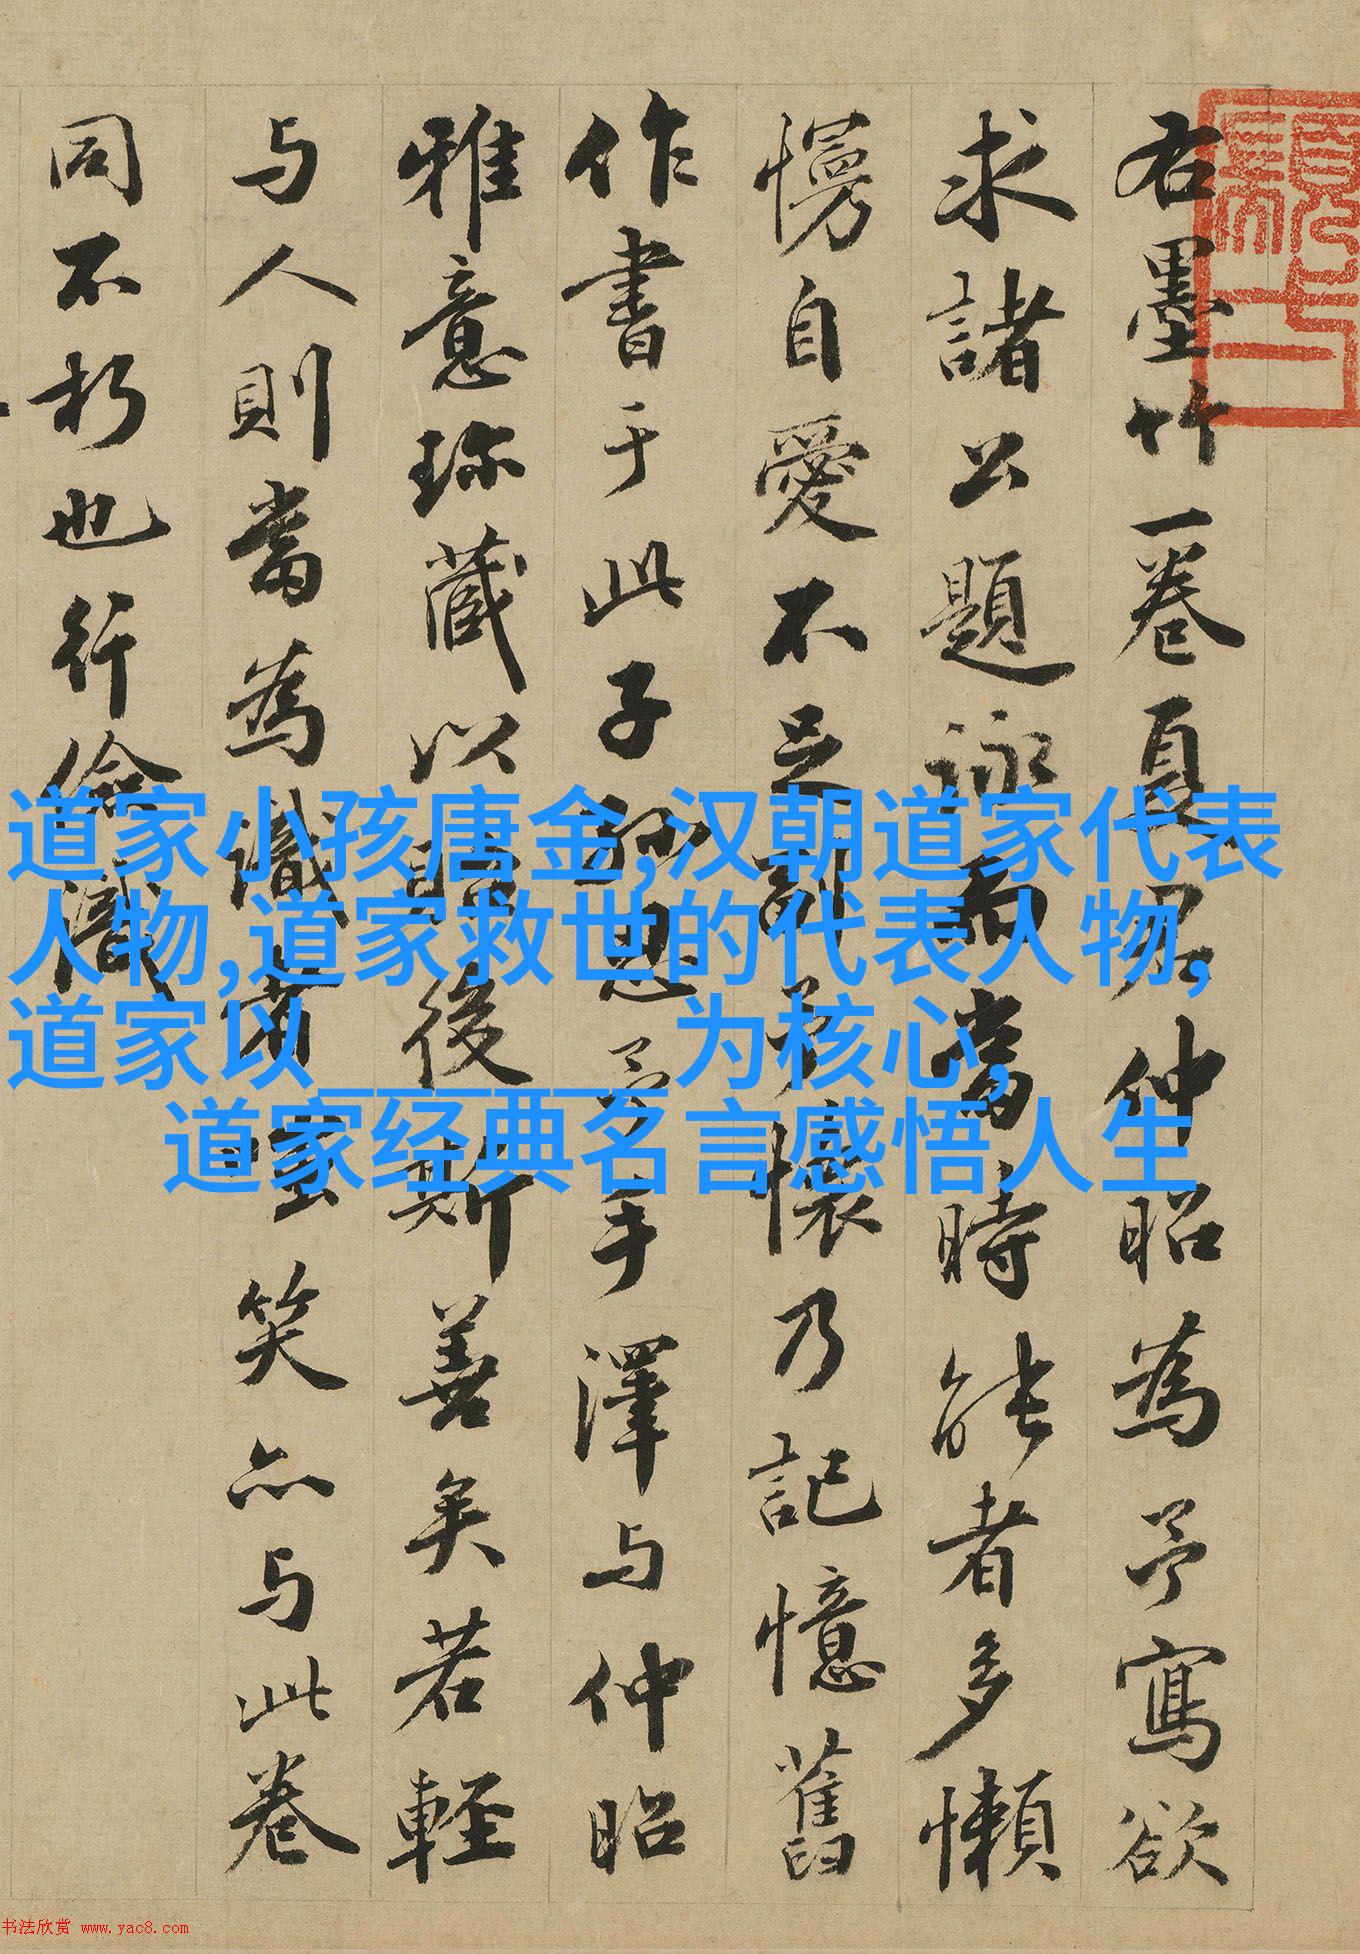 右墨竹一卷夏君仲昭為予寫欲
求諸公題詠而當時能者多懶
慢自愛不足副予懷乃記憶舊
作書于此子孫思予手澤与仲昭
雅意珎藏以貽後斯善矣若輕
与人則當為識者嗤笑亦与此卷
同不朽也行儉識
道家小孩唐金,汉朝道家代表
人物,道家救世的代表人物,
道家以________为核心,
道家经典名言感悟人生
书法欣赏 www.yac8.com